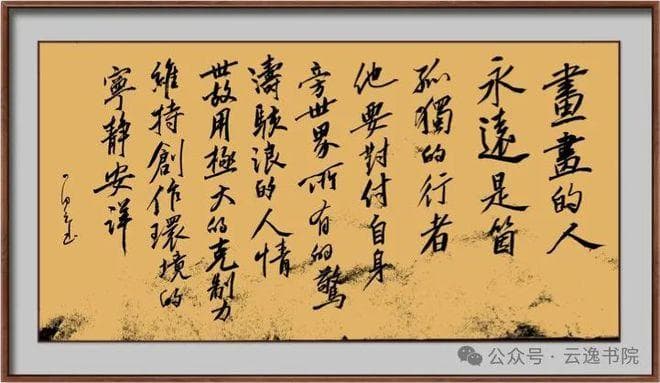 畫畫的人
永遠是箇
孤獨的行者
他要對付自身
旁世界所有的驚
濤駭浪的人情
世故用極大的克制力
維持創作環境的
寧靜安詳
公众号·云逸书院